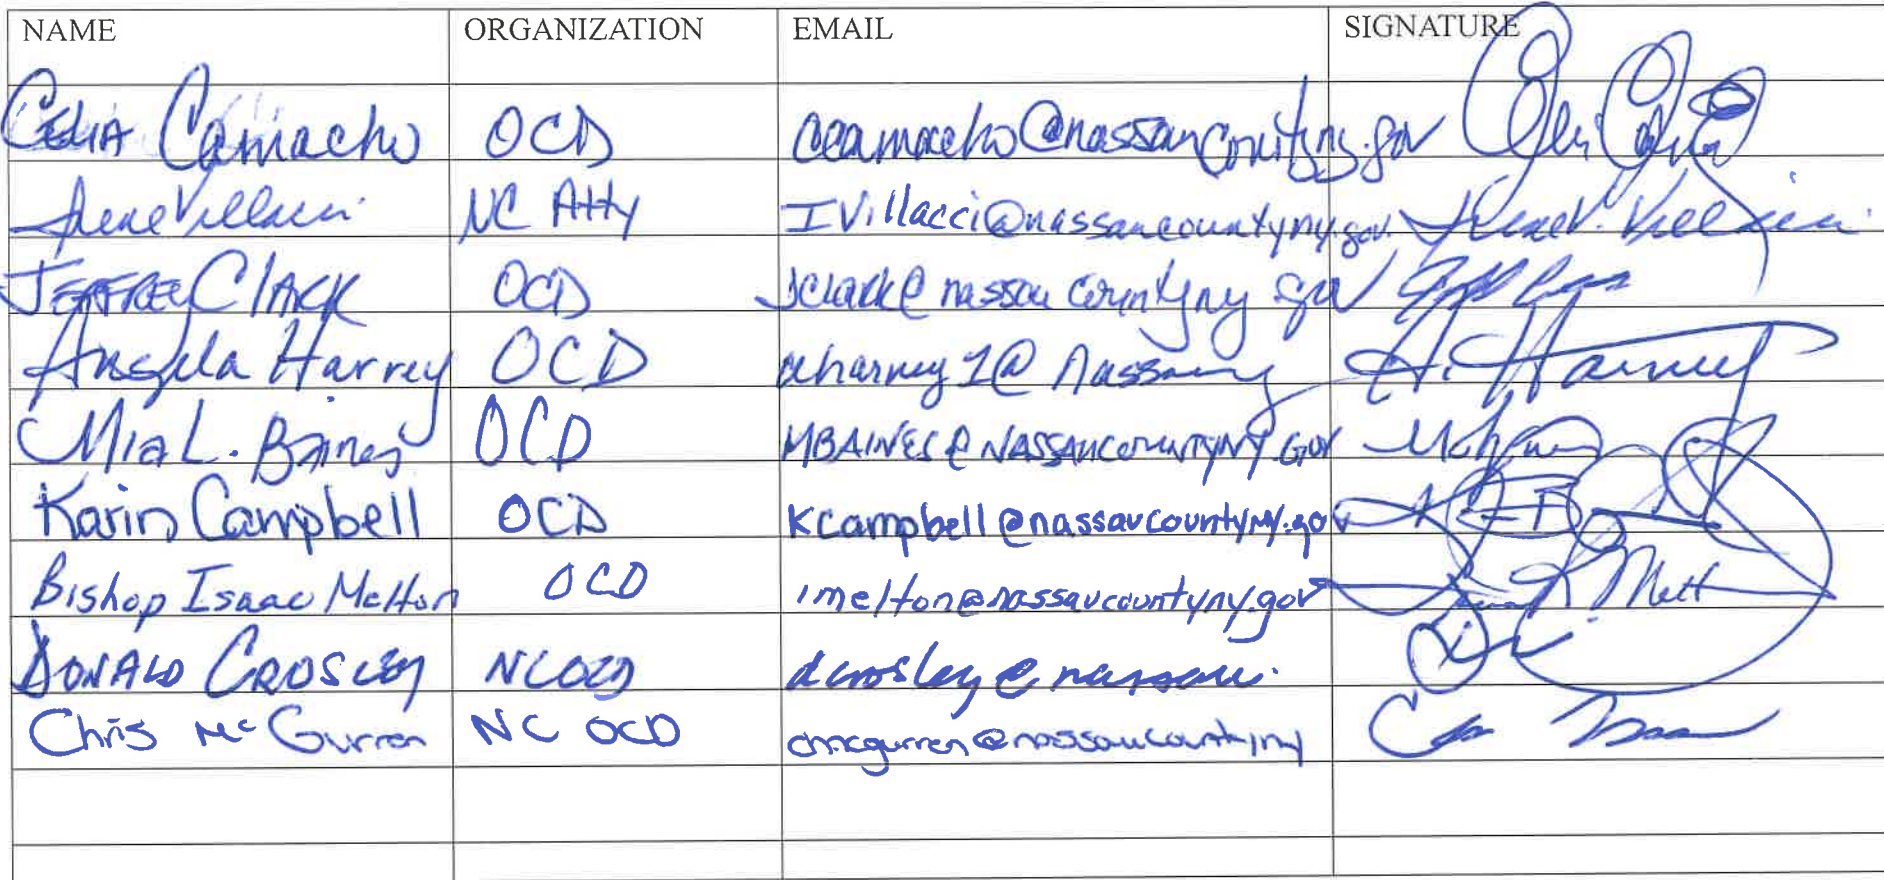 NAME ORGANIZATION EMAIL SIGNATURE
CELIA Camacho OCD ccamacho@nassaucountyny.gov
Irene Villacci NC Atty IVillacci@nassaucountyny.gov. Irene V. Villacci
JEFFREY ClARK OCD jclark@nassaucountyny gov
Angela Harvey OCD aharvey1@Nassauny A. Harvey
Mia L. Baines OCD MBAINES@NASSAUCOUNTYNY.GOV
Karin Campbell OCD kcampbell@nassaucountyny.gov
Bishop Isaac Melton OCD imelton@nassaucountyny.gov
DONALD CROSLEY NCOCD dcrosley@nassau.
Chris McGurren NC OCD cmcgurren@nassaucountyny